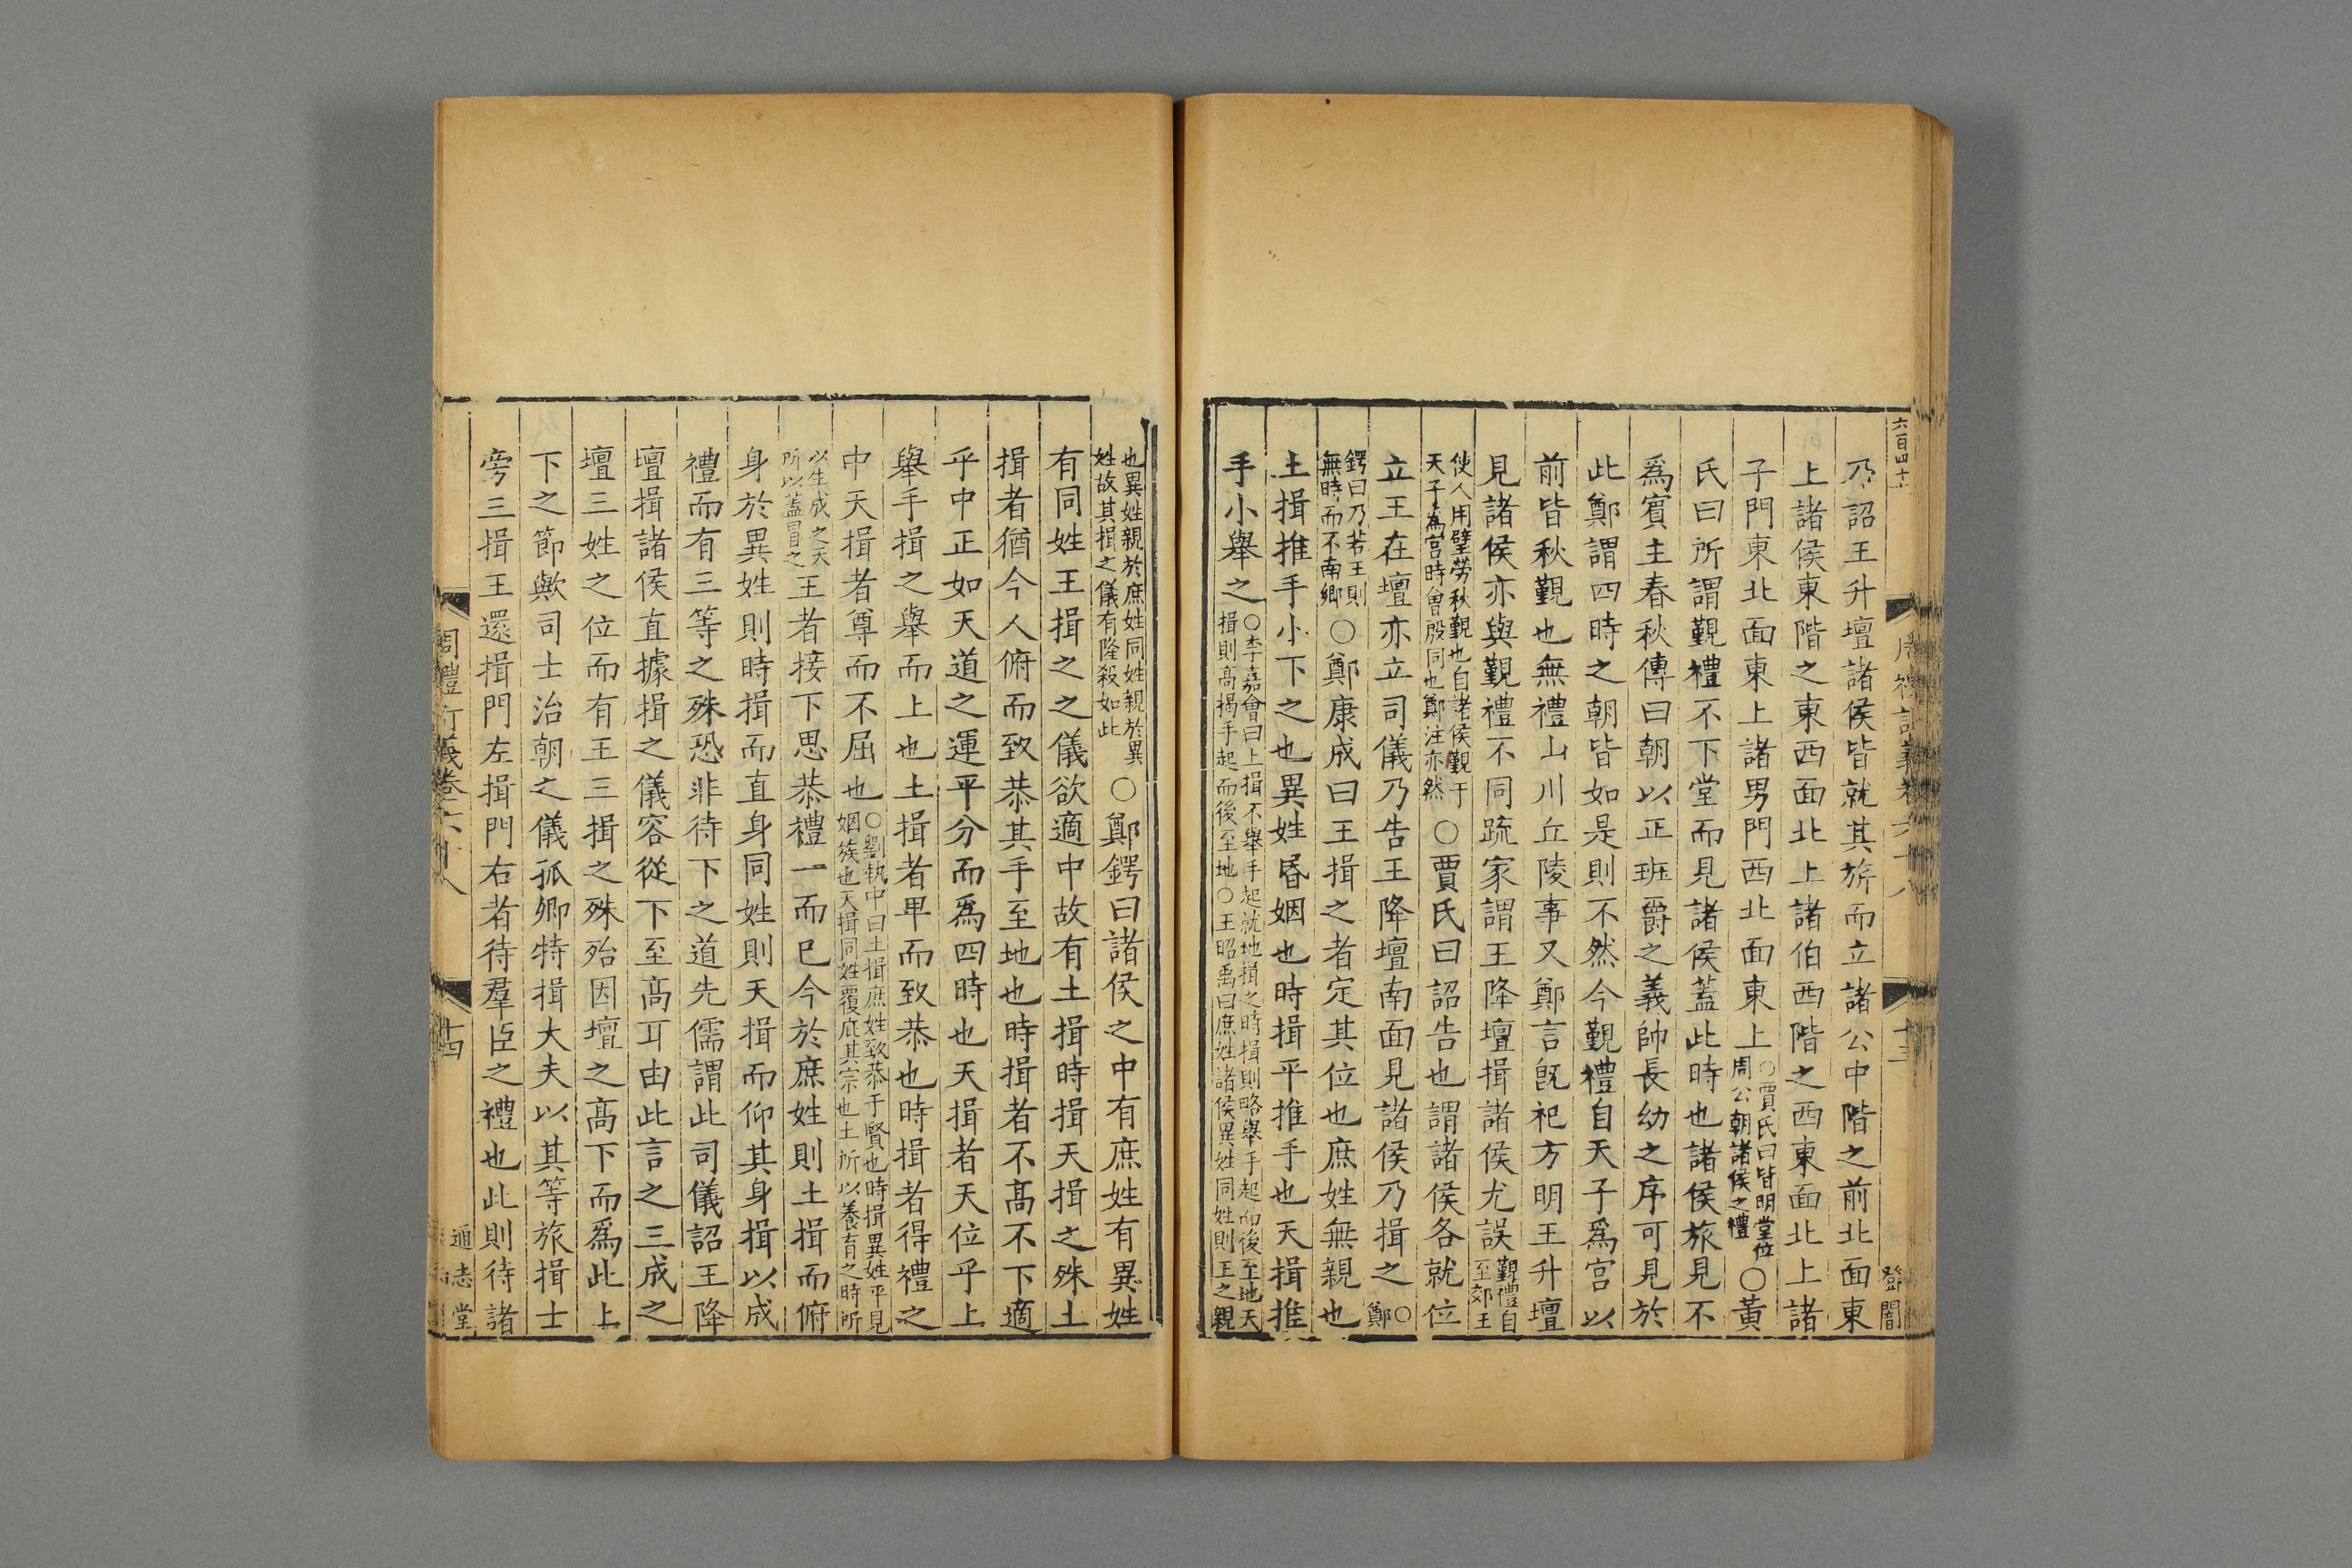 六百四十
周禮訂義卷六十八
十三
登閣
乃詔王升壇諸侯皆就其旂而立諸公中階之前北面東
上諸侯東階之東西面北上諸伯西階之西東面北上諸
子門東北面東上諸男門西北面東上○賈氏曰皆明堂位周公朝諸侯之禮○黃
氏曰所謂覲禮不下堂而見諸侯蓋此時也諸侯旅見不
爲賓主春秋傳曰朝以正班爵之義帥長幼之序可見於
此鄭謂四時之朝皆如是則不然今覲禮自天子爲宮以
前皆秋覲也無禮山川丘陵事又鄭言旣祀方明王升壇
見諸侯亦與覲禮不同疏家謂王降壇揖諸侯尤誤覲禮自至郊王
使人用璧勞秋覲也自諸侯覲于天子爲宮時會殷同也鄭注亦然○賈氏曰詔告也謂諸侯各就位
立王在壇亦立司儀乃告王降壇南面見諸侯乃揖之○鄭
鍔曰乃若王則無時而不南鄉○鄭康成曰王揖之者定其位也庶姓無親也
土揖推手小下之也異姓昏姻也時揖平推手也天揖推
手小舉之○李嘉會曰上揖不舉手起就地揖之時揖則略舉手起而後至地天揖則高揭手起而後至地○王昭禹曰庶姓諸侯異姓同姓則王之親
也異姓親於庶姓同姓親於異姓故其揖之儀有隆殺如此○鄭鍔曰諸侯之中有庶姓有異姓
有同姓王揖之之儀欲適中故有土揖時揖天揖之殊土
揖者猶今人俯而致恭其手至地也時揖者不高不下適
乎中正如天道之運平分而爲四時也天揖者天位乎上
舉手揖之舉而上也土揖者卑而致恭也時揖者得禮之
中天揖者尊而不屈也○劉執中曰土揖庶姓致恭于賢也時揖異姓平見姻族也天揖同姓覆庇其宗也土所以養育之時所
以生成之天所以蓋冒之王者接下思恭禮一而已今於庶姓則土揖而俯
身於異姓則時揖而直身同姓則天揖而仰其身揖以成
禮而有三等之殊恐非待下之道先儒謂此司儀詔王降
壇揖諸侯直據揖之儀容從下至高耳由此言之三成之
壇三姓之位而有王三揖之殊殆因壇之高下而爲此上
下之節歟司士治朝之儀孤卿特揖大夫以其等旅揖士
旁三揖王還揖門左揖門右者待羣臣之禮也此則待諸
周禮訂義卷六十八
十四
通志堂